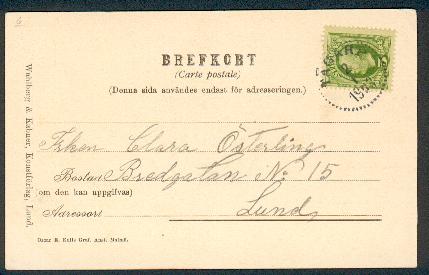 6
BREFKORT
(Carte postale)
(Denna sida användes endast för adresseringen.)
Fröken Clara Österling
Bostad Bredgatan No 15
(om den kan uppgifvas)
Adressort Lund
Wahlberg & Kehner, Konstförlag, Lund.
Oscar R. Kulls Graf. Anst. Malmö.